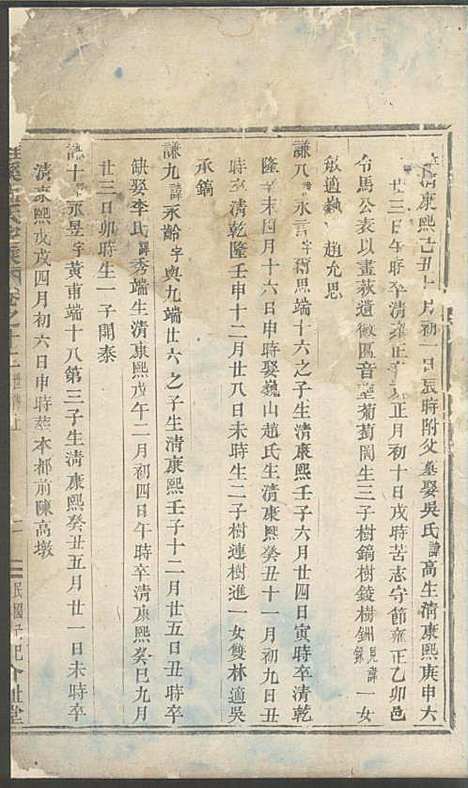 清康熙己丑十月初一日辰時附父墓娶吳氏諱高生清康熙庚申六
廿三日午時卒清雍正癸亥正月初十日戌時苦志守節雍正乙卯邑
令馬公表以畫荻遺徽區音葡萄園生三子樹鎬樹錂樹洲見譜一女
敏適趙允思
謙八諱永言字爾思端十六之子生清康熙壬子六月廿四日寅時卒清乾
隆辛未四月十六日申時娶巍山趙氏生清康熙癸丑十一月初九日丑
時卒清乾隆壬申十二月廿八日未時生二子樹連樹進一女雙林適吳
承鎬
謙九諱永齡字與九端廿六之子生清康熙壬子十二月廿五日丑時卒
缺娶李氏諱秀端生清康熙戊午二月初四日午時卒清康熙癸巳九月
廿三日卯時生一子開泰
謙十諱永昱字黃甫端十八第三子生清康熙癸丑五月廿一日未時卒
清康熙戊戌四月初六日申時葬本都前陳高墩
卷之十三
民國己巳
世堂